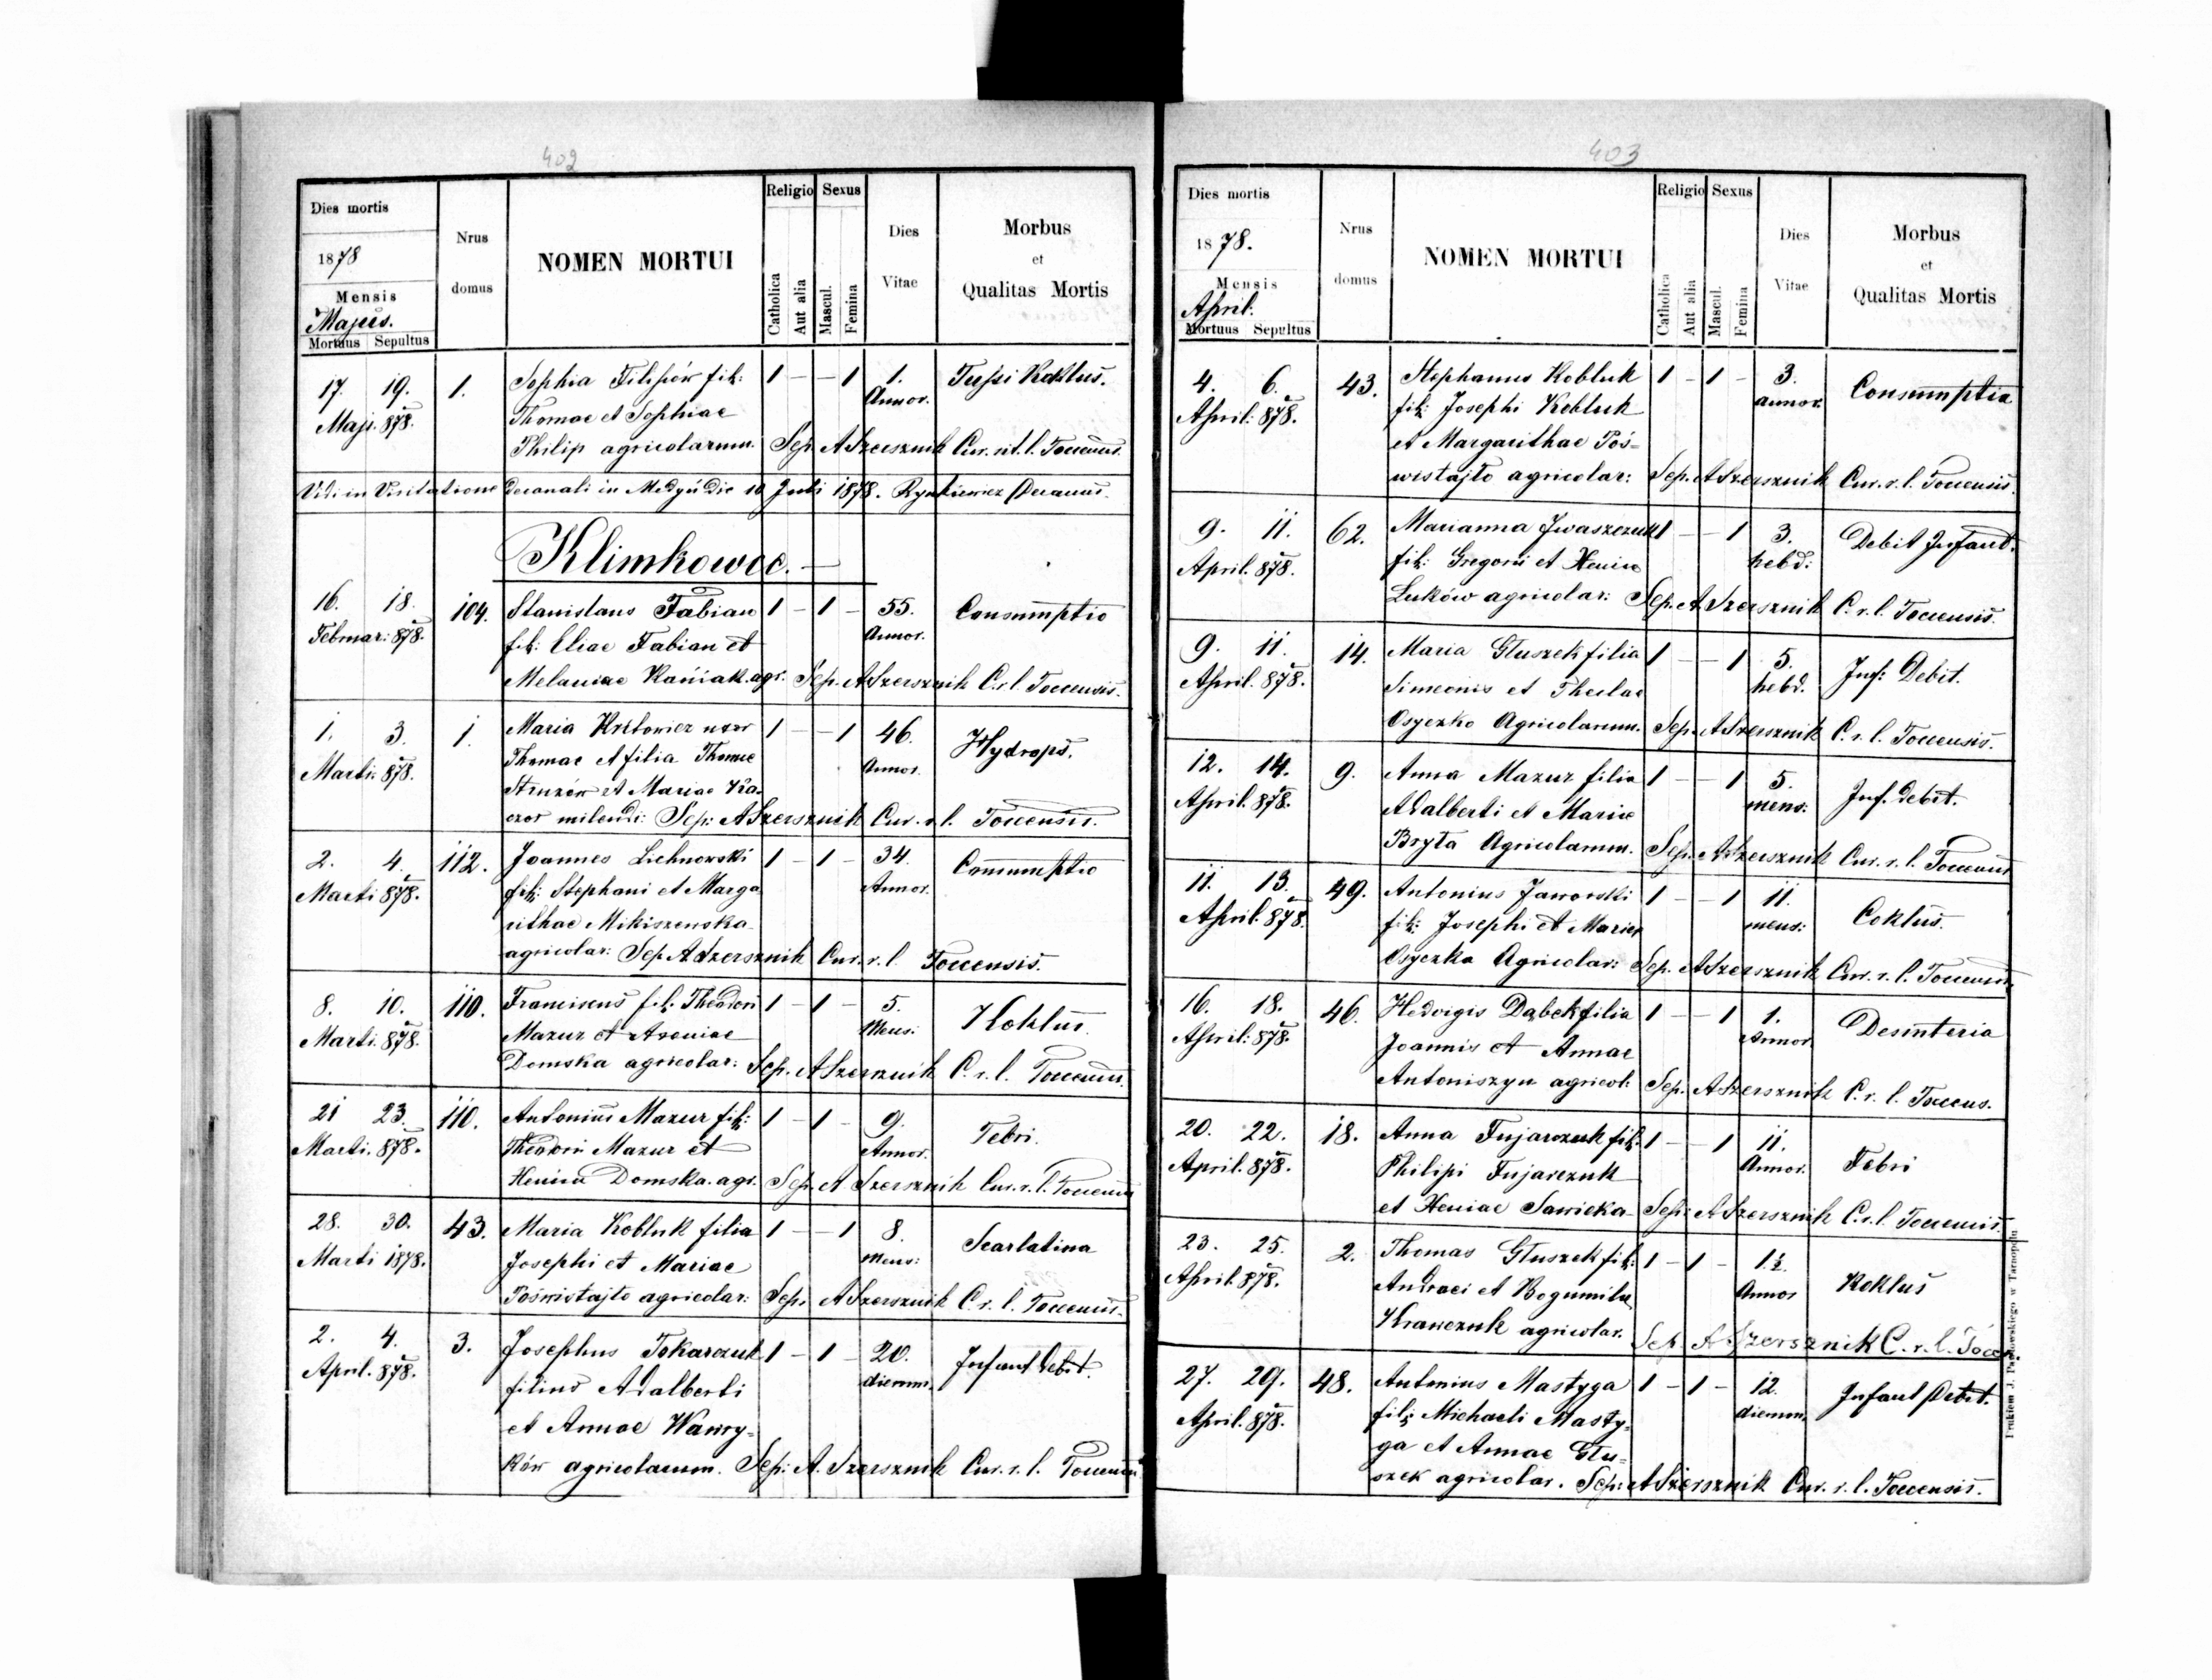 402
Dies mortis
1878
Mensis
Majus.
Mortuus Sepultus
Nrus
domus
NOMEN MORTUI
Religio
Catholica
Aut alia
Sexus
Mascul.
Femina
Dies
Vitae
Morbus
et
Qualitas Mortis
17. 19. 1. Sophia Filipów fil: 1 – – 1 1. Tussi Koklus.
Maji. 878. Thomae et Sophiae Annor.
Philip agricolarum. Sep. A Szersznik Cur. rit. l. Tocensis.
Vidi in Visitatione decanali in Medyń die 10 Juli 1878. Rynkiewicz Decanus.
Klimkowce.
16. 18. 104. Stanislaus Fabian 1 – 1 – 55. Consumptio
Februar: 878. fil: Eliae Fabian et Annor.
Melaniae Kaniak. agr. Sep. A Szersznik C. r. l. Tocensis.
1. 3. 1. Maria uxor 1 – – 1 46. Hydrops.
Marti. 878. Thomae et filia Thomae Annor.
et Mariae Ka-
czor Sep: A Szersznik Cur. r. l. Tocensis.
2. 4. 112. Joannes Lichnowski 1 – 1 – 34. Consumptio
Marti 878. fil: Stephani et Marga Annor.
rithae Mikiszewska
agricolar: Sep. A Szersznik Cur. r. l. Tocensis.
8. 10. 110. Franciscus fil. Theodori 1 – 1 – 5. Koklus
Marti. 878. Mazur et Xseniae Mens:
Domska agricolar: Sep. A Szersznik C. r. l. Tocensis.
21 23. 110. Antonius Mazur fil: 1 – 1 – 9. Febri.
Marti. 878. Theodori Mazur et Annor.
Domska. agr. Sep. A Szersznik Cur. r. l. Tocensis
28. 30. 43. Maria Kobluk filia 1 – – 1 8. Scarlatina
Marti 1878. Josephi et Mariae Mens:
Poświstajlo agricolar: Sep. A Szersznik C. r. l. Tocensis.
2. 4. 3. Josephus Tokarczuk 1 – 1 – 20. Infant debit.
April. 878. filius Adalberti dierum.
et Annae Wawry-
ków agricolarum. Sep: A. Szersznik Cur. r. l. Tocensis
403
Dies mortis
1878.
Mensis
April.
Mortuus Sepultus
Nrus
domus
NOMEN MORTUI
Religio
Catholica
Aut alia
Sexus
Mascul.
Femina
Dies
Vitae
Morbus
et
Qualitas Mortis
4. 6. 43. Stephanus Kobluk 1 – 1 – 3. Consumptia
April: 878. fil: Josephi Kobluk annor.
et Margarithae Poś-
wistajlo agricolar: Sep. A Szersznik Cur. r. l. Tocensis.
9. 11. 62. Marianna Jwaszczuk 1 – – 1 3. Debit Infant.
April. 878. fil: Gregorii et Xeniae hebd:
Luków agricolar: Sep. A Szersznik C. r. l. Tocensis.
9. 11. 14. Maria Głuszek filia 1 – – 1 5. Inf: Debit.
April. 878. Simeonis et Theclae hebd.
Osyczko Agricolarum. Sep. A Szersznik C. r. l. Tocensis.
12. 14. 9. Anna Mazur filia 1 – – 1 5. Inf. debit.
April. 878. Adalberti et Mariae mens:
Bryła Agricolarum. Sep. A Szersznik Cur. r. l. Tocensis
11. 13. 49. Antonius Jaworski 1 – – 1 11. Coklus.
April. 878. fil: Josephi et Mariae mens:
Osyczka Agricolar: Sep. A Szersznik Cur. r. l. Tocensis.
16. 18. 46. Hedvigis Dąbek filia 1 – – 1 1. Desinteria
April: 878. Joannis et Annae Annor.
Antoniszyn agricol: Sep: A Szersznik C. r. l. Tocens.
20. 22. 18. Anna Fujarczuk fil: 1 – – 1 11. Febri
April. 878. Philipi Fujarczuk Annor.
et Xeniae Sawicka Sep: A Szersznik C. r. l. Tocensis.
23. 25. 2. Thomas Głuszek fil: 1 – 1 – 1½. Koklus
April 878. Andraei et Bogumila Annor
Krawczuk agricolar. Sep. A Szersznik C. r. l. Tocen.
27. 29. 48. Antonius Mastyga 1 – 1 – 12. Infant Debit.
April. 878. fil: Michaeli Masty- dierum.
ga et Annae Głu-
szek agricolar. Sep: A Szersznik Cur. r. l. Tocensis.
Drukiem J. Pawłowskiego w Tarnopolu